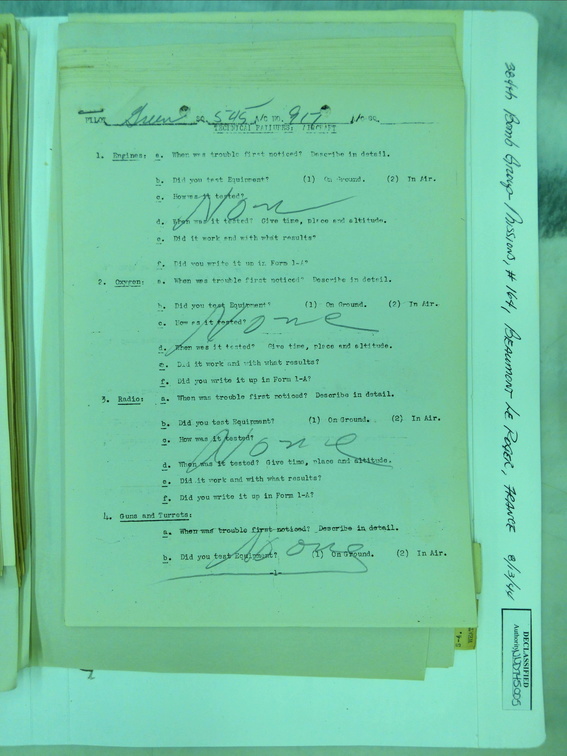 PILOT Green SQ. 545 A/C NO. 917 A/C
TECHNICAL FAILURES: AIRCRAFT
1. Engines: a. When was trouble first noticed? Describe in detail.
b. Did you test Equipment? (1) On Ground. (2) In Air.
c. How was it tested?
None
d. When was it tested? Give time, place and altitude.
e. Did it work and with what results?
f. Did you write it up in Form 1-A?
2. Oxygen: a. When was trouble first noticed? Describe in detail.
b. Did you test Equipment? (1) On Ground. (2) In Air.
c. How as it tested?
None
d. When was it tested? Give time, place and altitude.
e. Did it work and with what results?
f. Did you write it up in Form 1-A?
3. Radio: a. When was trouble first noticed? Describe in detail.
b. Did you test Equipment? (1) On Ground. (2) In Air.
c. How was it tested?
None
d. When was it tested? Give time, place and altitude.
e. Did it work and with what results?
f. Did you write it up in Form 1-A?
4. Guns and Turrets:
a. When was trouble first noticed? Describe in detail.
b. Did you test Equipment? (1) On Ground. (2) In Air.
None
-1-
384th Bomb Group Missions, # 164, Beaumont Le Roger, France 8/13/44
DECLASSIFIED
Authority NND745005